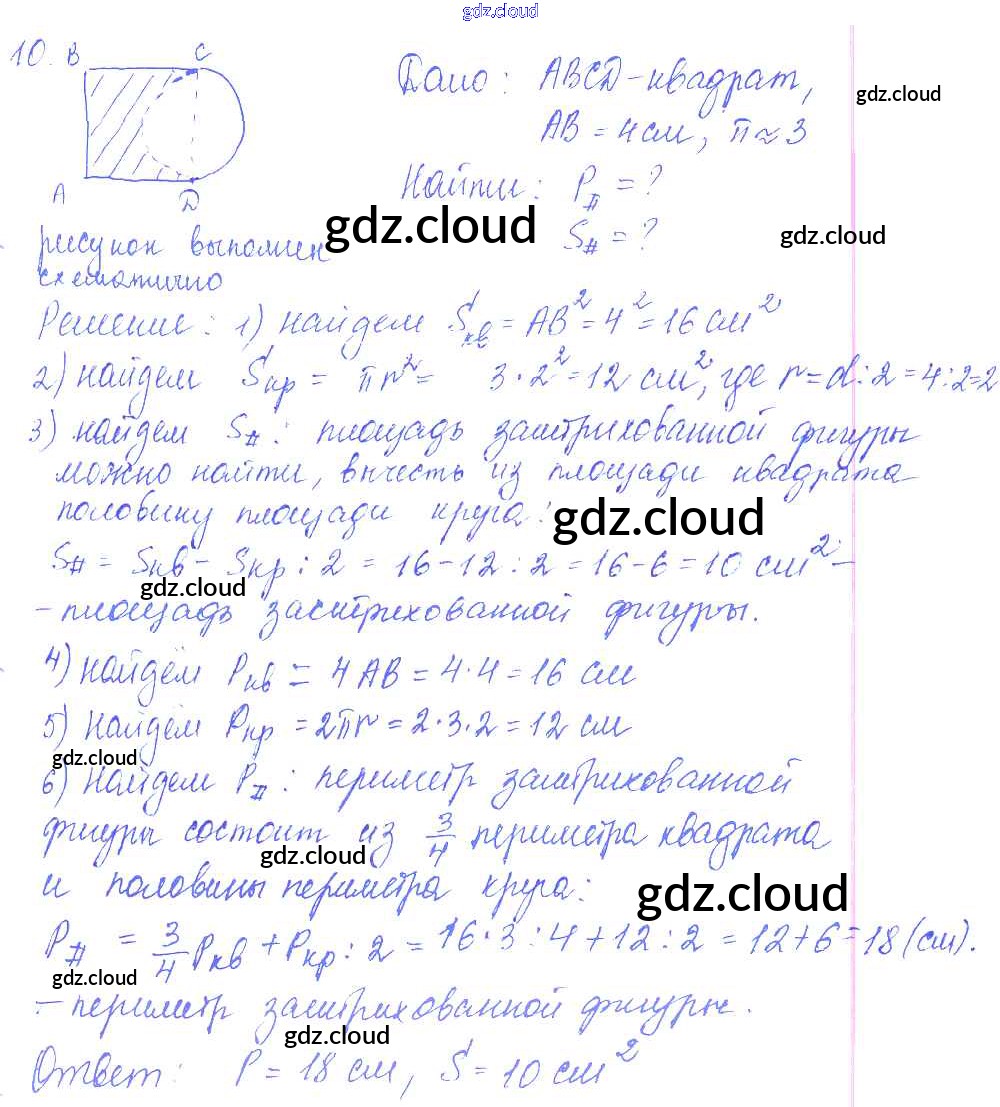 gdz.cloud
10. B C
A D
Дано: ABCD-квадрат,
gdz.cloud
AB = 4 см, π ≈ 3
Найти: P# = ?
gdz.cloud
S# = ?
gdz.cloud
рисунок выполнен
схематично
Решение: 1) найдем Sкв = AB² = 4² = 16 см²
2) найдем Sкр = πr² = 3·2² = 12 см², где r = d:2 = 4:2=2
3) найдем S#: площадь заштрихованной фигуры
можно найти, вычесть из площади квадрата
половину площади круга:
gdz.cloud
S# = Sкв - Sкр : 2 = 16 - 12 : 2 = 16 - 6 = 10 см² -
gdz.cloud
- площадь заштрихованной фигуры.
4) найдём Pкв = 4AB = 4·4 = 16 см
5) найдём Pкр = 2πr = 2·3·2 = 12 см
gdz.cloud
6) найдем P#: периметр заштрихованной
фигуры состоит из 3/4 периметра квадрата
gdz.cloud
и половины периметра круга:
gdz.cloud
P# = 3/4 Pкв + Pкр : 2 = 16·3:4 + 12:2 = 12 + 6 = 18 (см).
gdz.cloud
- периметр заштрихованной фигуры.
gdz.cloud
Ответ: P = 18 см, S = 10 см²